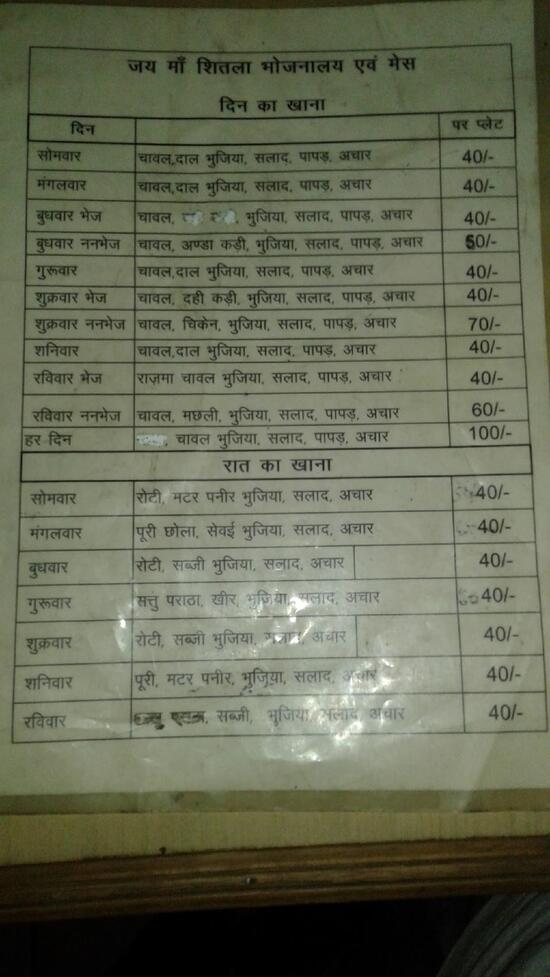 जय माँ शितला भोजनालय एवं मेस
दिन का खाना
दिन पर प्लेट
सोमवार चावल,दाल भुजिया, सलाद, पापड़, अचार 40/-
मंगलवार चावल,दाल भुजिया, सलाद, पापड़, अचार 40/-
बुधवार भेज चावल, भुजिया, सलाद, पापड़, अचार 40/-
बुधवार ननभेज चावल, अण्डा कड़ी, भुजिया, सलाद, पापड़, अचार 50/-
गुरूवार चावल,दाल भुजिया, सलाद, पापड़, अचार 40/-
शुक्रवार भेज चावल, दही कड़ी, भुजिया, सलाद, पापड़, अचार 40/-
शुक्रवार ननभेज चावल, चिकेन, भुजिया, सलाद, पापड़, अचार 70/-
शनिवार चावल,दाल भुजिया, सलाद, पापड़, अचार 40/-
रविवार भेज राज़मा चावल भुजिया, सलाद, पापड़, अचार 40/-
रविवार ननभेज चावल, मछली, भुजिया, सलाद, पापड़, अचार 60/-
हर दिन , चावल भुजिया, सलाद, पापड़, अचार 100/-
रात का खाना
सोमवार रोटी, मटर पनीर भुजिया, सलाद, अचार 40/-
मंगलवार पूरी छोला, सेवई भुजिया, सलाद, अचार 40/-
बुधवार रोटी, सब्जी भुजिया, सलाद, अचार 40/-
गुरूवार सत्तु पराठा, खीर, भुजिया, सलाद, अचार 40/-
शुक्रवार रोटी, सब्जी भुजिया, सलाद, अचार 40/-
शनिवार पूरी, मटर पनीर, भुजिया, सलाद, अचार 40/-
रविवार , सब्जी, भुजिया, सलाद, अचार 40/-